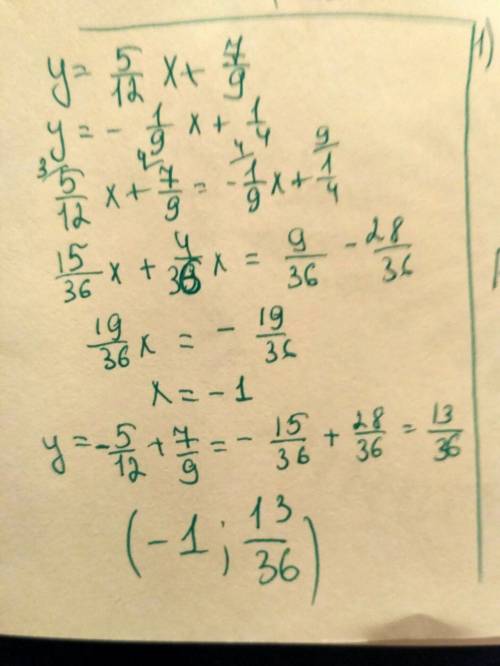 y = 5/12 x + 7/9
y = - 1/9 x + 1/4
3 5/12 x + 4 7/9 = 4 - 1/9 x + 9 1/4
15/36 x + 4/36 x = 9/36 - 28/36
19/36 x = - 19/36
x = - 1
y = - 5/12 + 7/9 = - 15/36 + 28/36 = 13/36
(-1; 13/36)